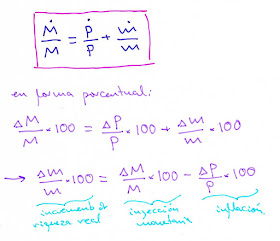 Ṁ/M = Ṗ/P + ṁ/m
en forma porcentual:
ΔM/M × 100 = ΔP/P × 100 + Δm/m × 100
→ Δm/m × 100 = ΔM/M × 100 − ΔP/P × 100
incremento de riqueza real   inyección monetaria   inflación